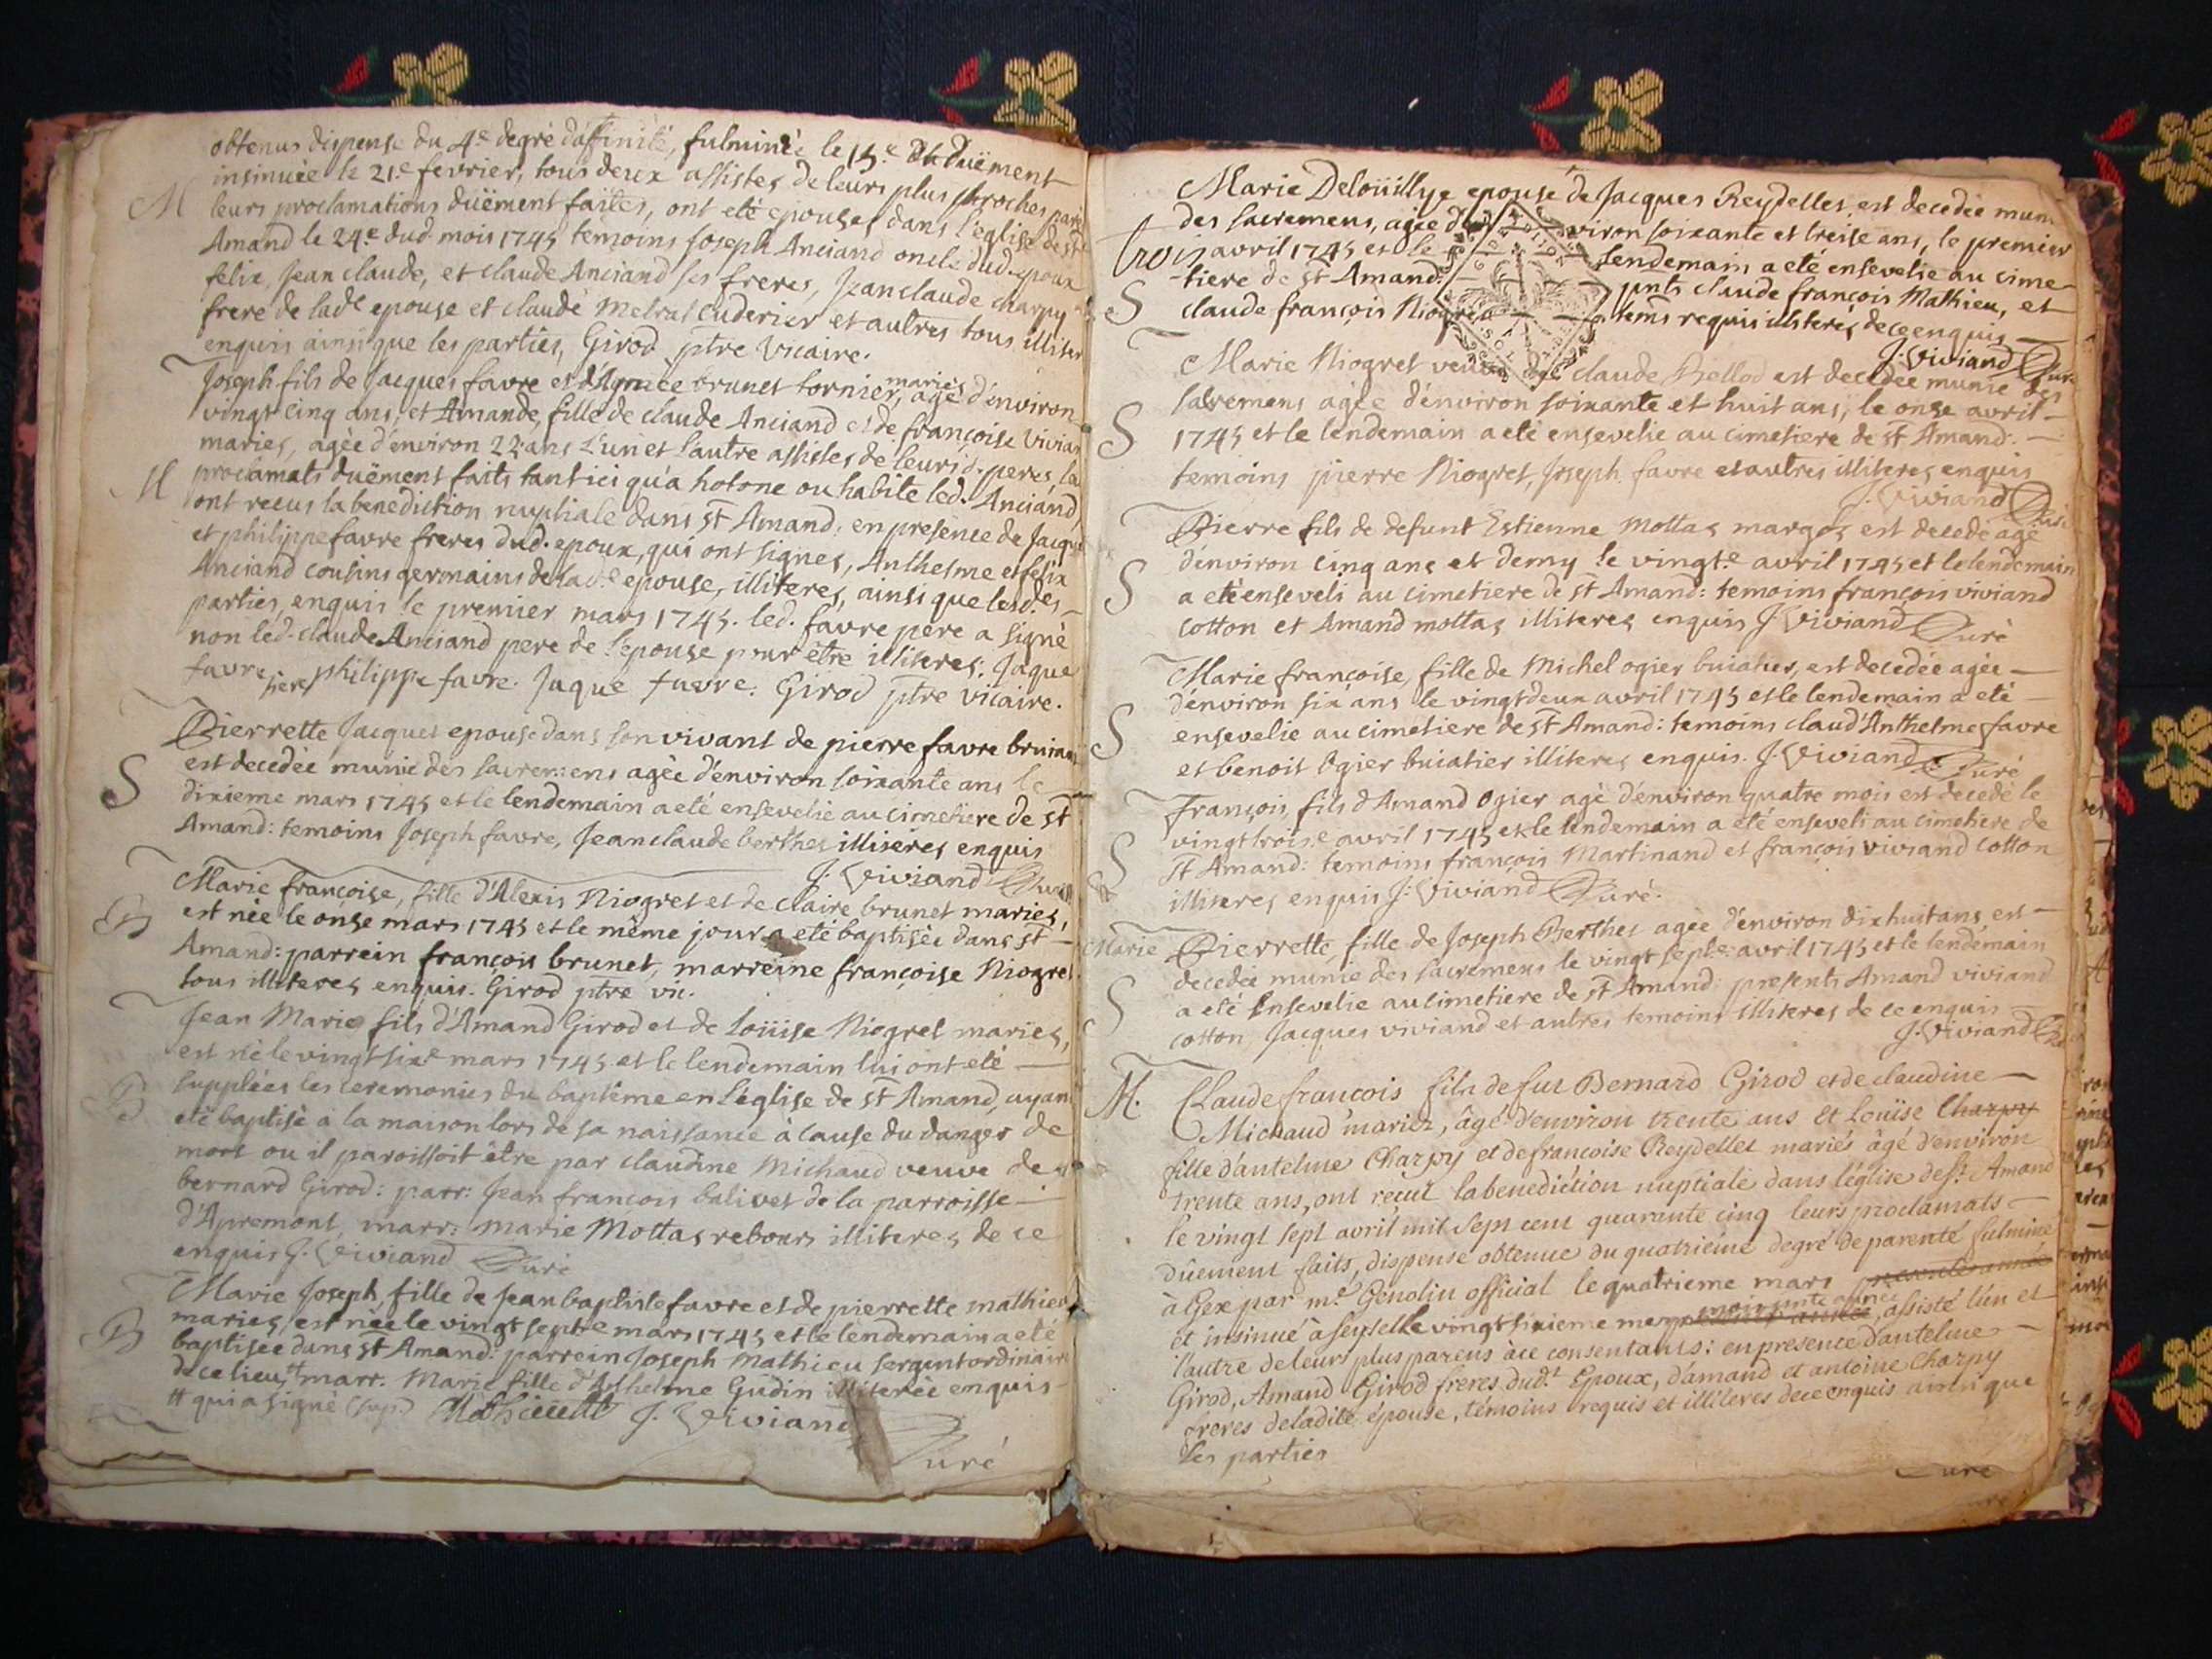 obtenus dispense du 4.e degré d'affinité, fulminée le 15.e et duëment
insinuée le 21.e fevrier, tous deux assistés de leurs plus proches
M leurs proclamations duëment faites, ont eté epousés dans l'eglise de st
Amand le 24.e dud. mois 1745 temoins Joseph Anciand oncle dud. epoux
felix, Jean claude, et claude Anciand ses freres, Jean claude charpy
frere de lad.e epouse et claude metral cuderier et autres tous
enquis ainsi que les parties, Girod ptre Vicaire.
Joseph fils de Jacques favre et d'Aymée brunet tornier, mariés agé d'environ
vingt cinq ans, et Amande, fille de claude Anciand et de françoise
mariés, agée d'environ 22 ans l'un et l'autre assistés de leurs d. peres,
M proclamats duëment faits tant ici qu'a hotone ou habite led. Anciand,
ont recus la benediction nuptiale dans st Amand, en presence de
et philippe favre freres dud. epoux, qui ont signés, Anthesme et felix
Anciand cousins germains de lad.e epouse, illiteres, ainsi que lesd.es
parties, enquis le premier mars 1745. led. favre pere a signé
non led. claude Anciand pere de l'epouse pour etre illiteres: Jaque
favre pere philippe favre. Jaque favre. Girod ptre vicaire.
Pierrette Jacques epouse dans son vivant de pierre favre
est decedée munie des sacremens agée d'environ soixante ans le
S dixieme mars 1745 et le lendemain a eté ensevelie au cimetiere de st
Amand: temoins Joseph favre, Jean claude berthet illiterés enquis
J. Viviand Curé
Marie françoise, fille d'Alexis Niogret et de claire brunet mariés,
B est née le onze mars 1745 et le même jour a eté baptisée dans st
Amand: parrein françois brunet, marreine françoise
tous illiteres enquis. Girod ptre vic.
Jean Marie fils d'Amand Girod et de Loüise Niogret mariés,
est né le vingt six.e mars 1745 et le lendemain lui ont eté
B supplées les ceremonies du baptême en l'eglise de st Amand,
eté baptisé a la maison lors de sa naissance à cause du danger de
mort ou il paroissoit être par claudine Michaud veuve de
bernard Girod: parr: Jean françois balivet de la parroisse
d'Apremont, marr: Marie Mottas rebours illiteres de ce
enquis J. Viviand Curé
Marie Joseph, fille de Jean baptiste favre et de pierrette mathieu
mariés, est née le vingt sept.e mars 1745 et le lendemain a eté
B baptisée dans st Amand: parrein Joseph Mathieu sergent ordinaire
de ce lieu, # marr. Marie fille d'Anthelme Gudin illiterée enquis
# qui a signé J. Viviand
Curé
Marie Deloüillye epouse de Jacques Reydellet est decedée
des sacremens, agée d'environ soixante et treise ans, le premier
trois avril 1745 et le lendemain a eté ensevelie au cime-
-tiere de st Amand: pnts claude françois Mathieu, et
S claude françois Niogret tems requis illiterés de ce enquis
J. Viviand Curé
Marie Niogret veuve de claude Bellod est decedée munie des
sacremens agée d'environ soixante et huit ans, le onze avril
S 1745 et le lendemain a eté ensevelie au cimetiere de st Amand:
temoins pierre Niogret, Joseph favre et autres illiteres enquis
J. Viviand Curé
Pierre fils de defunt Estienne Mottas margos est decedé agé
d'environ cinq ans et demy le vingt.e avril 1745 et le lendemain
S a eté enseveli au cimetiere de st Amand: temoins françois viviand
cotton et Amand mottas illiteres enquis J. Viviand Curé
Marie françoise, fille de Michel ogier buiatier, est decedée agée
d'environ six ans le vingt deux avril 1745 et le lendemain a eté
S ensevelie au cimetiere de st Amand: temoins claud'Anthelme favre
et benoit Ogier buiatier illiteres enquis. J. Viviand Curé
François, fils d'Amand Ogier agé d'environ quatre mois est decedé le
vingt trois.e avril 1745 et le lendemain a eté enseveli au cimetiere de
S st Amand: temoins françois Martinand et françois viviand cotton
illiteres enquis J. Viviand Curé.
Marie Pierrette, fille de Joseph Berthet agée d'environ dix huit ans est
decedée munie des sacremens le vingt sept.e avril 1745 et le lendemain
S a eté Ensevelie au cimetiere de st Amand: presents Amand viviand
cotton, Jacques viviand et autres temoins illiteres de ce enquis
J. Viviand
M. Claude francois fils de fut Bernard Girod et de claudine
Michaud mariez, âgé d'environ trente ans et Louïse Charpy
fille d'antelme Charpy et de francoise Reydellet mariés âgé d'environ
trente ans, ont recut la benediction nuptiale dans l'église de st Amand
le vingt sept avril mil sept cent quarante cinq leurs proclamats
düement faits, dispense obtenue du quatrieme degré de parenté fulminé
à Gex par m.e Genolin official le quatrieme mars
et insinué à seyselle vingt sixieme assisté l'un et
l'autre de leurs plus parens à ce consentants: en presence d'antelme
Girod, Amand Girod freres dud.t Epoux, d'amand et antoine Charpy
freres de ladite épouse, témoins requis et illiteres de ce enquis ainsi que
les parties
Curé